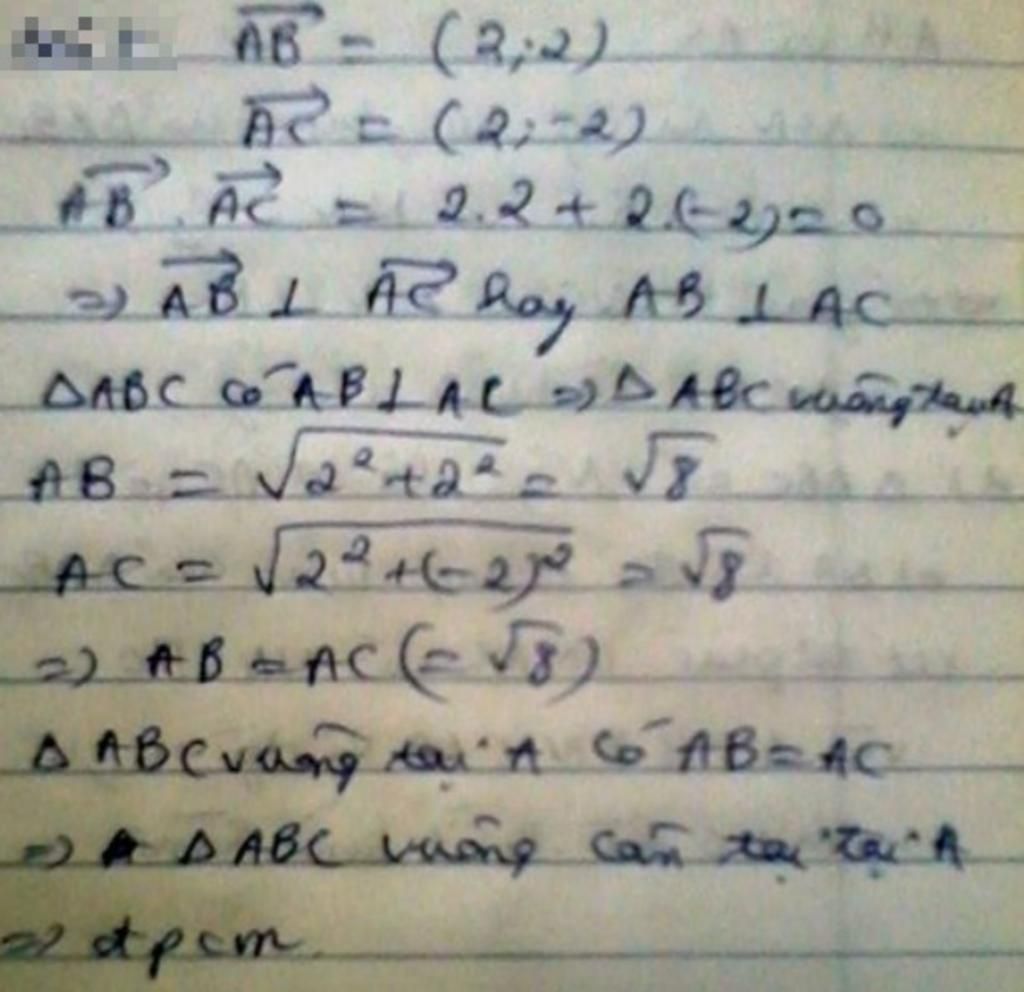 $\overrightarrow{AB} = (2;2)$
$\overrightarrow{AC} = (2;-2)$
$\overrightarrow{AB} . \overrightarrow{AC} = 2.2 + 2.(-2) = 0$
$\Rightarrow \overrightarrow{AB} \perp \overrightarrow{AC}$ hay $AB \perp AC$
$\Delta ABC$ có $AB \perp AC \Rightarrow \Delta ABC$ vuông tại A
$AB = \sqrt{2^2+2^2} = \sqrt{8}$
$AC = \sqrt{2^2+(-2)^2} = \sqrt{8}$
$\Rightarrow AB = AC (= \sqrt{8})$
$\Delta ABC$ vuông tại A có $AB = AC$
$\Rightarrow \Delta ABC$ vuông cân tại tại A
$\Rightarrow$ đpcm